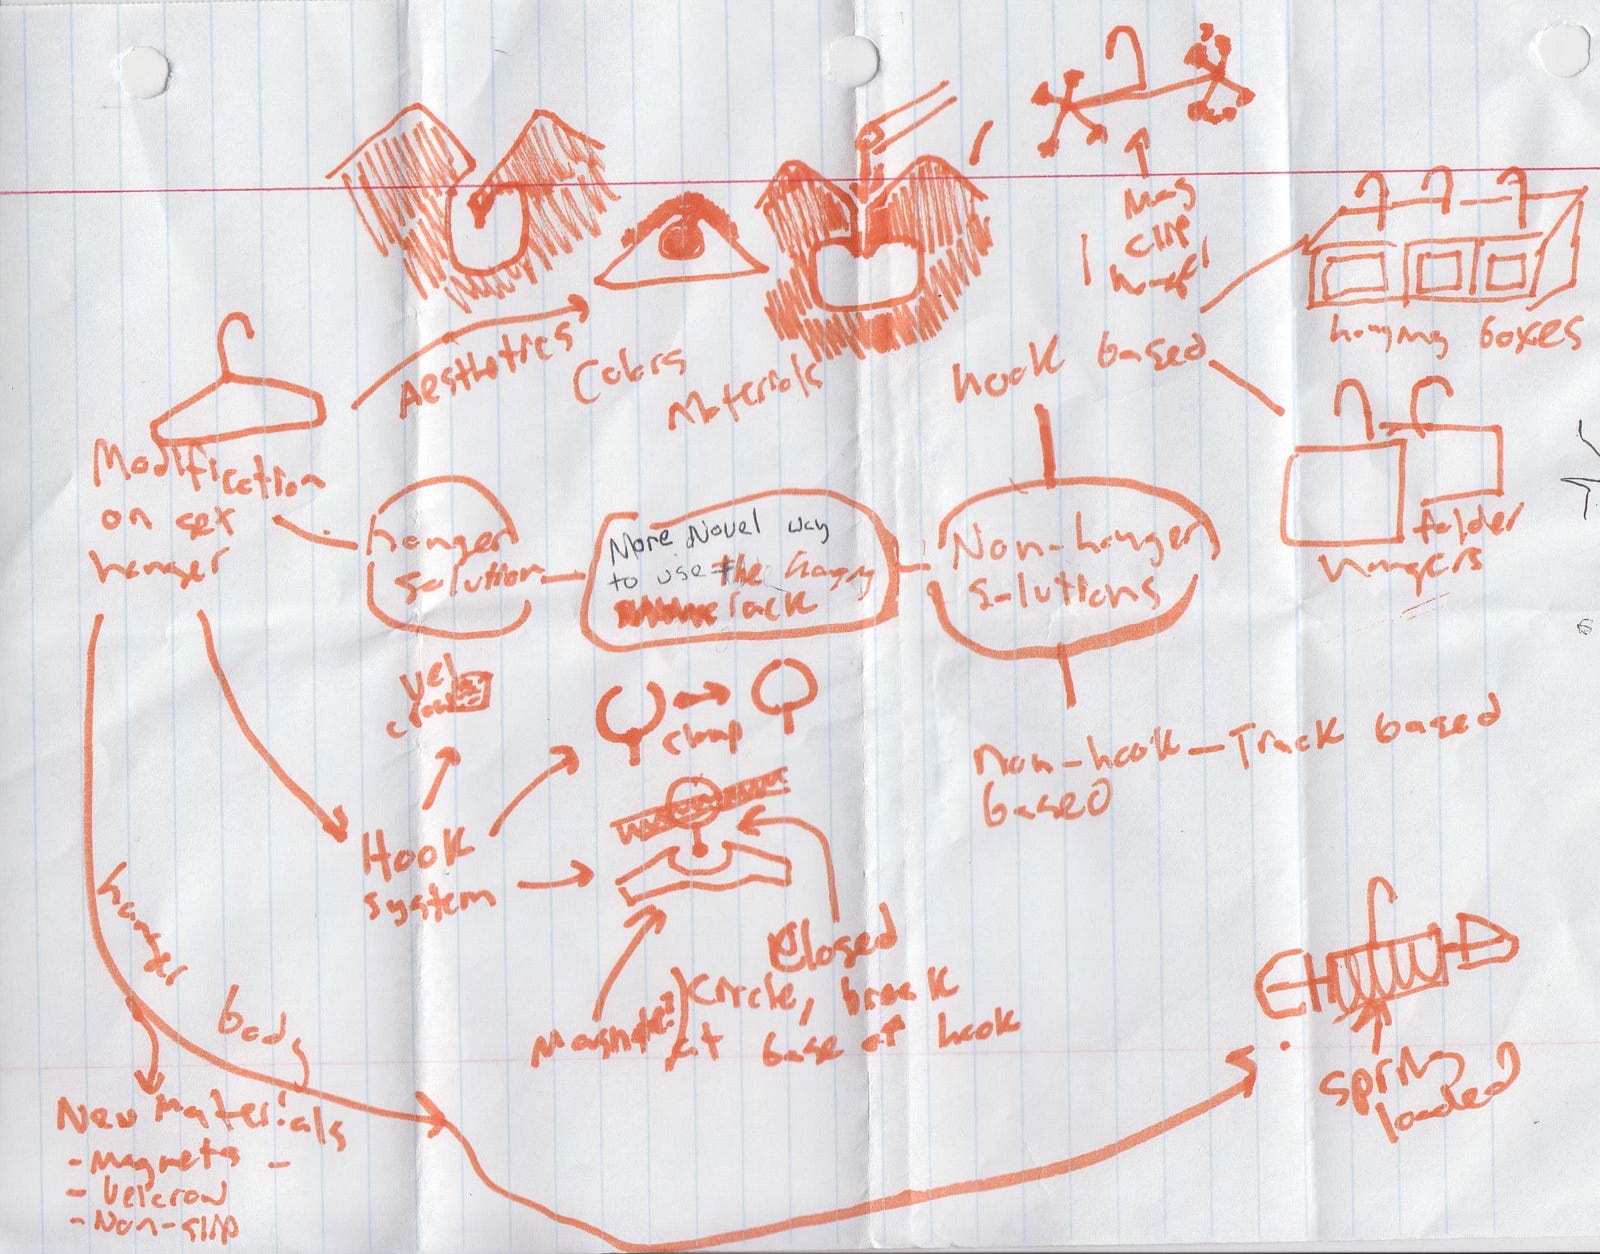 Aesthetics
Colors
Materials
clip
hook based
hanging boxes
folder
hangers
Modification
on
hanger
hanger
solution
More Novel way
to use the hanging
rack
Non-hanger
solutions
vel
crow
clamp
Hook
system
Non-hook - Track based
based
Closed
Circle, break
at base of hook
Magnets?
hanger body
New Materials
- Magnets -
- Velcrow
- Non-slip
spring
loaded